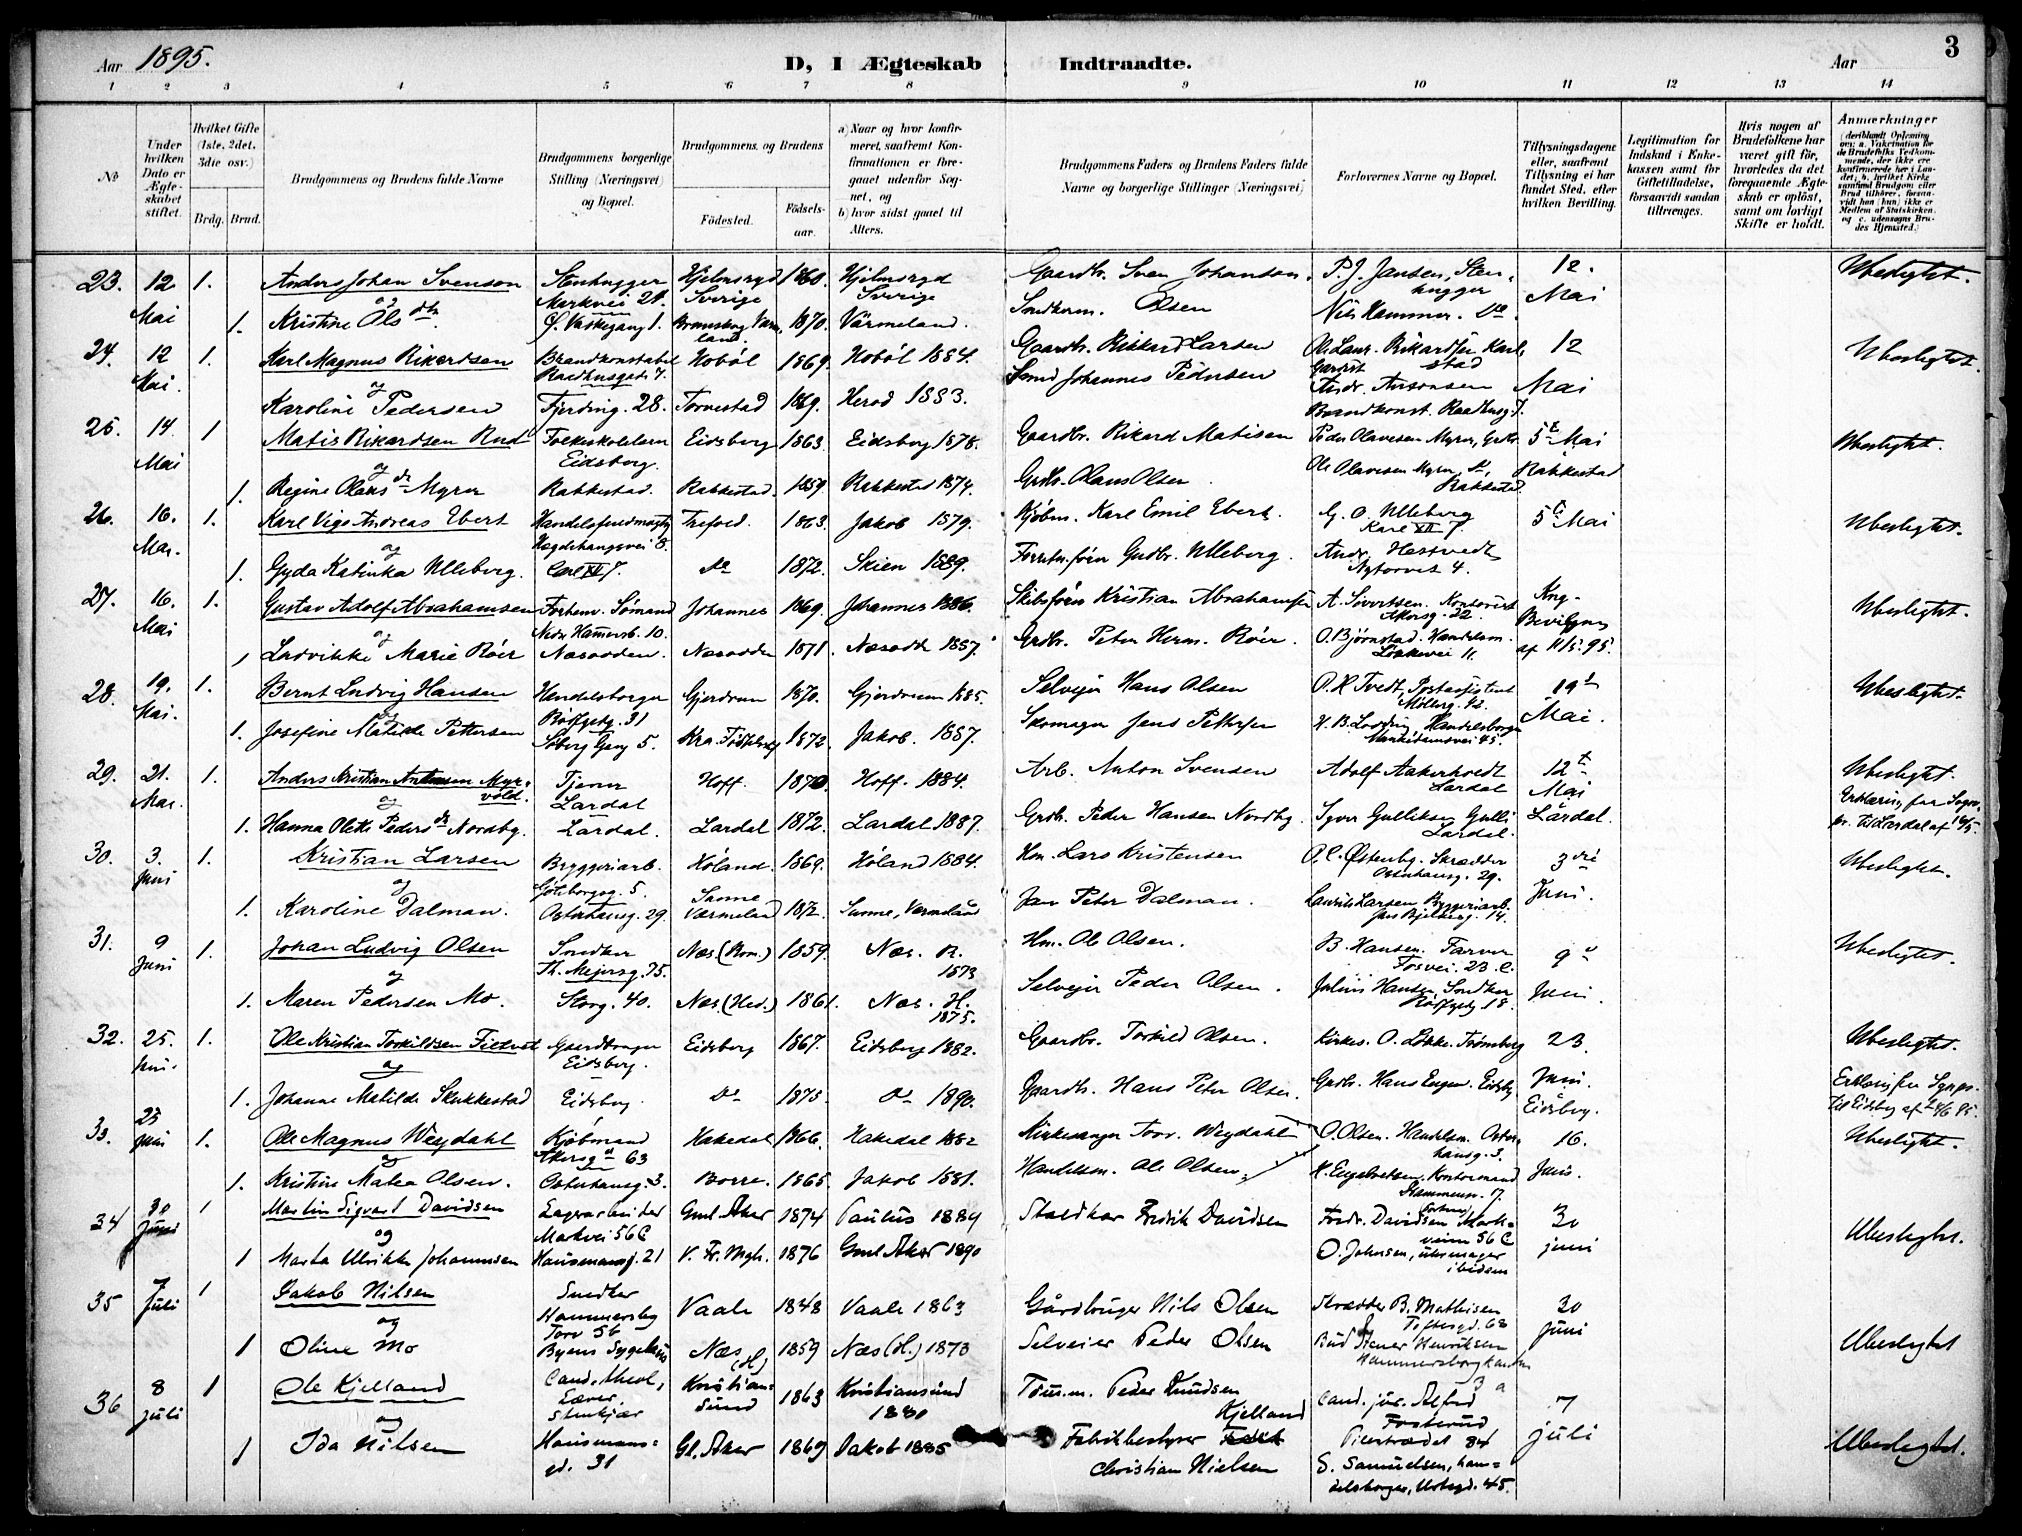 Aar 1895.
D, I Ægteskab Indtraadte.
Aar
3
1 2 3 4 5 6 7 8 9 10 11 12 13 14
No
Under hvilken Dato er Ægteskabet stiftet.
Hvilket Gifte (1ste, 2det, 3die osv.)
Brdg. Brud.
Brudgommens og Brudens fulde Navne
Brudgommens borgerlige Stilling (Næringsvei) og Bopæl.
Brudgommens og Brudens
Födested.
Födselsaar.
a) Naar og hvor konfirmeret, saafremt Konfirmationen er foregaaet udenfor Sognet, og
b) hvor sidst gaaet til Alters.
Brudgommens Faders og Brudens Faders fulde Navne og borgerlige Stillinger (Næringsvei)
Forlovernes Navne og Bopæl.
Tillysningsdagene eller, saafremt Tillysning ei har fundet Sted, efter hvilken Bevilling.
Legitimation for Indskud i Enkekassen samt for Giftetilladelse, forsaavidt saadan tiltrænges.
Hvis nogen af Brudefolkene har været gift för, hvorledes da det foregaaende Ægteskab er oplöst, samt om lovligt Skifte er holdt.
Anmærkninger
23. 12. Mai 1. Anders Johan Svenson Stenhugger Markvei 21. Hjelmsryd Sverige 1860. Hjelmsryd Sverige Gaardbr. Sven Johanson. P. J. Jansen, Stenhugger 12. Mai Ubeslægtet.
og
1. Kristine Olsdtr. 1870. Värmeland. Olsen Nils Hammer. Do
24. 12 Mai. 1. Karl Magnus Rikardsen Brandkonstabel Raadhusgade 7. Hobøl 1869. Hobøl 1884. Gaardbr. Rikkard Larsen Ole Laur. Rikardsen 12 Mai Ubeslægtet.
og
Karoline Pedersen Fjerding. 28. Torvestad 1869. 1883. Johannes Pedersen Brandkonst. Raadhusg. 7.
25. 14 Mai 1 Matis Rikardsen Rud Eidsberg. Eidsberg 1863 Eidsberg 1878. Gaardbr. Rikard Matisen Peder Olavesen Myrer, Grdbr. 5te Mai Ubeslægtet.
og
1. Regine Olausdr Myrer Rakkestad. Rakkestad. 1859 Rakkestad 1874. Grdbr. Olaus Olsen Ole Olavesen Myrer, Do, Rakkestad Rakkestad
26. 16. Mai. 1. Karl Vigo Andreas Ebert Handelsfuldmægtig Hægdehaugsvei 8. Trefold. 1863. Jakob 1879. Kjøbm. Karl Emil Ebert. G. O. Ulleberg Karl XII 7. 5te Mai Ubeslægtet.
og
1. Gyda Katinka Ulleberg. Carl XII 7. Do 1872. Skien 1889. Grdbr. Ulleberg. Andr. Hestvedt Nytorvet 4.
27. 16. Mai 1. Gustav Adolf Abrahamsen Forhenv. Sømand Nedr. Hamersb. 10. Johannes 1869. Johannes 1886. Skibsfører Kristian Abrahamsen A. Sivertsen. Kontorist Akersg. 22. Kng. Bevilgng af 11/5. 95. Ubeslægtet.
og
1 Ludvikke Marie Røer Næsodden. Næsodden 1871. Næsodd. 1887. Grdbr. Peter Herm. Röer. O. Bjørnstad. Handelsm. Løkkevei 11.
28. 19. Mai. 1. Bernt Ludvig Hansen Handelsborger Rosfgtg. 31 Gjerdrum 1870. Gjerdrum 1885. Selveier Hans Olsen O. K. Tvedt, Postassistent Møllerg. 42. 19de Mai. Ubeslægtet.
og
1. Josefine Matilde Pettersen Søberg Geng 5. Kra. Födselsst. 1872. Jakob. 1887. Skomager Jens Pettersen Handelsborger 45.
29. 21. Mai. 1. Anders Kristian Antonsen Myrvold. Tjener Lardal Hoff. 1870. Hoff. 1884. Arb. Anton Svensen Adolf Aakerholdt Lardal 12te Mai Ubeslægtet.
og
1. Hanna Olette Pedersdr Nordby. Lardal. Lardal 1872. Lardal 1887. Grdbr. Peder Hansen Nordby Iver Gulliksen Gulli Lardal. Lårdal. Erklæring fra Sogn. pr. til Lardal af 16/5.
30. 3. Juni 1. Kristian Larsen Bryggeriarb. Göteborgsg. 5. Höland. 1869. Höland 1884. Hm. Lars Kristensen O. C. Østenby. Skrædder Osterhausg. 29. 3die Juni. Ubeslægtet.
og
1. Karoline Dalman. Osterhausg. 29. Sunne Værmeland 1872. Sunne, Værmeland Jan Peter Dalman. Laurits Larsen Byggeriarb. Jens Bjelkesg. 14.
31. 9 Juni 1. Johan Ludvig Olsen Snedker Th. Mejersg. 75. Næs. (Rom.) 1859. Næs. R. 1873 Hm. Ole Olsen. B. Hansen. Farver Fosvei. 23 C. 9de Juni. Ubeslægtet.
og
1. Maren Pedersen Mo. Storg. 40. Næs (Hed.) 1861. Næs. H. 1875. Selveier Peder Olsen. Julius Hansen, Snedker 18.
32. 25. Juni. 1. Ole Kristian Torkildsen Gaardbruger Eidsberg. Eidsberg 1867. Eidsberg 1882. Gaardbr. Torkild Olsen. Kirkes. O. Løkke. Trömborg 23. Juni. Ubeslægtet.
og
1. Johanne Matilde Skukkestad Eidsberg Do 1875. Do 1890. Gaardbr. Hans Peter Olsen. Grdbr. Hans Engen. Eidsbg. Eidsberg. Erklæring fra Sgnps. til Eidsberg af 24/6 95.
33. 25 Juni 1. Ole Magnus Weydahl Kjöbmand Akersgt 63 Hakedal 1866. Hakedal 1882 Kirkesanger Torv. Weydahl O. Olsen. Handelsm. Osterhausg. 3. 16. Juni. Ubeslægtet.
og
1. Kristine Matea Olsen. Osterhausg. 3. Borre. 1865. Jakob 1881. Handelsm. Ole Olsen. K. Engebretsen, Kontormand 7.
34 30 Juni 1 Martin Sigvart Davidsen Lagerarbeider Markvei 56 C Gml Aker 1874 Paulus 1889 Staldkar Fredrik Davidsen Fredr. Davidsen Markveien 56 C 30 juni Ubeslægtet.
og
1 Marta Ulrikke Johannesen Hausmansg. 21 V. Fr. Mgh. 1876 Gml Aker 1890 O. Johnsen, uhrmager ibidem
35 7 Juli 1 Jakob Nilsen Snedker Hammersbg Torv 56 Vaale 1848 Vaale 1863 Gårdbruger Nils Olsen Skrædder B. Mathisen Toftesgd. 68 30 Juni
og
1 Oline Mo Byens Sygehus Næs (H) 1859 Næs (H.) 1873 Selveier Peder Olsen Bud Henriksen Ubeslægtet
36 8 juli 1 Ole Kjelland Cand. theol, Lærer, Stenkjær Kristiansund 1863 Kristiansund 1880 Peder Knudsen Kjelland Cand. jur. Alfred 7 juli
og
1 Ida Nilsen Hausmansgd. 31 Gl. Aker 1869 Jakob 1885 Fabrikbestyrer Christian Nielsen Pilestrædet 84 S. Samuelsen, handelsborger, Urtegd. 45. Ubeslægtet.